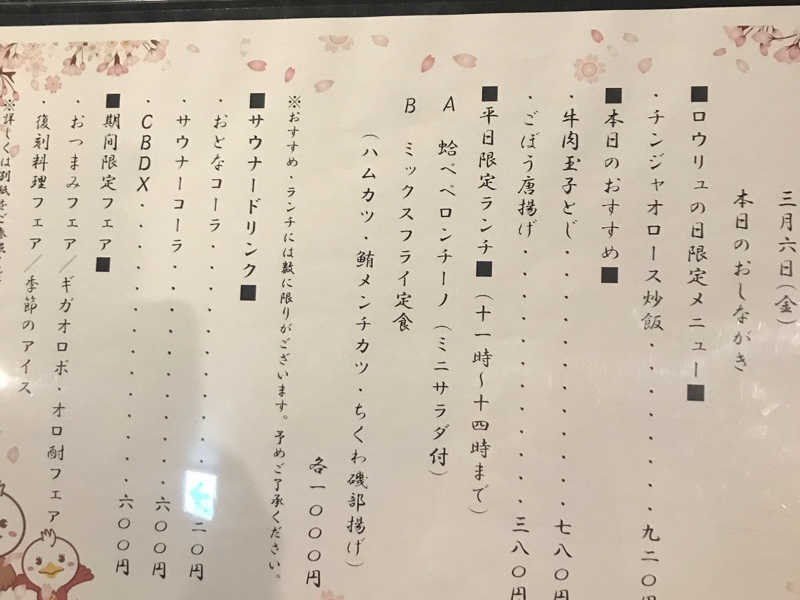 三月六日(金)
本日のおしながき
■ロウリュの日限定メニュー■
・チンジャオロース炒飯・・・・・・・・・・九二〇円
■本日のおすすめ■
・牛肉玉子とじ・・・・・・・・・・・・七八〇円
・ごぼう唐揚げ・・・・・・・・・・・・三八〇円
■平日限定ランチ■(十一時〜十四時まで)
A 蛤ペペロンチーノ(ミニサラダ付)
B ミックスフライ定食
(ハムカツ・鮪メンチカツ・ちくわ磯部揚げ)
各一〇〇〇円
※おすすめ・ランチには数に限りがございます。予めご了承ください。
■サウナードリンク■
・おとなコーラ・・・・・・・・・・二〇円
・サウナーコーラ・・・・・・・・・・六〇〇円
・CBDX・・・・・・・・・・・・・六〇〇円
■期間限定フェア■
・おつまみフェア/ギガオロポ・オロ酎フェア
・復刻料理フェア/季節のアイス
※詳しくは別紙をご